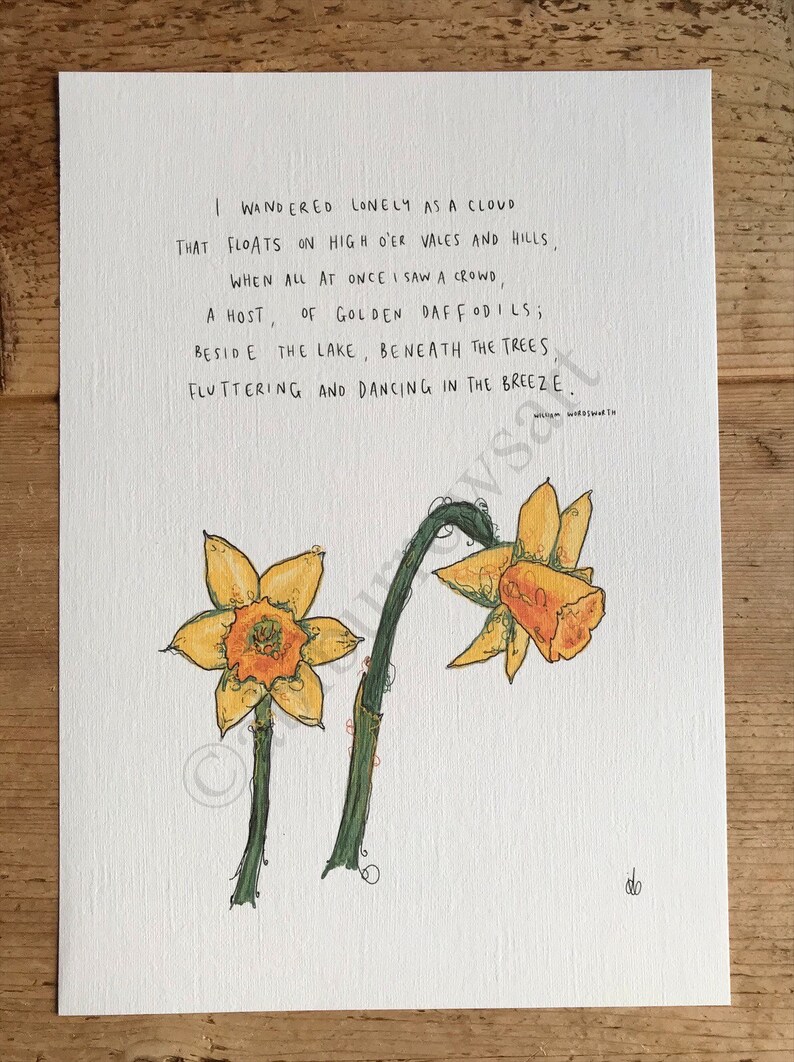 I WANDERED LONELY AS A CLOUD
THAT FLOATS ON HIGH O'ER VALES AND HILLS,
WHEN ALL AT ONCE I SAW A CROWD,
A HOST, OF GOLDEN DAFFODILS;
BESIDE THE LAKE, BENEATH THE TREES,
FLUTTERING AND DANCING IN THE BREEZE.
WILLIAM WORDSWORTH